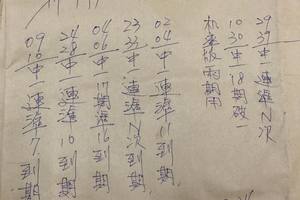 29
39中一連準N次
10
30中一18期改一
机率版兩期用
02
04中一連準11到期
23
33中一連準N次到期
04
06中一17期準16到期
24
28中一連準10到期
09
10中一連準7到期